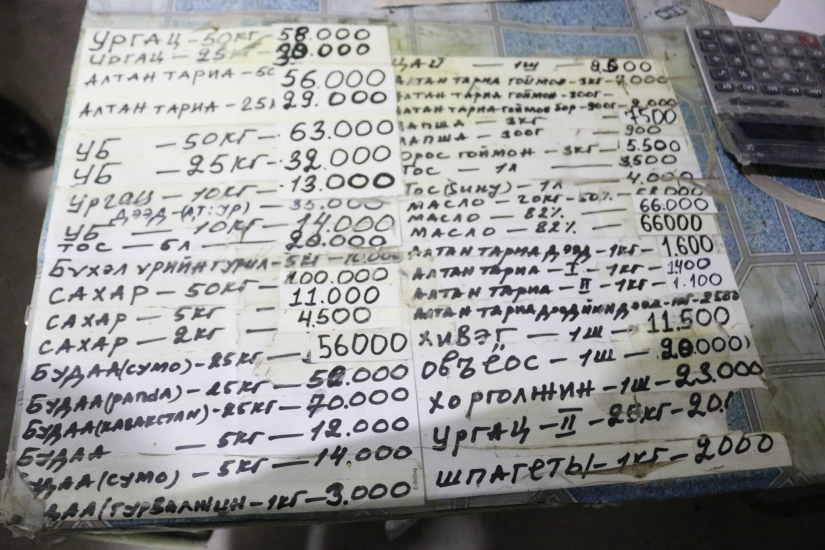 УРГАЦ - 50КГ - 58.000
УРГАЦ - 25КГ .000
АЛТАН ТАРИА - 56.000
АЛТАН ТАРИА - 25 29.000
УБ - 50КГ - 63.000
УБ - 25КГ - 32.000
УРГАЦ - 10КГ - 13.000
ДЭЭД -
УБ - 10КГ - 14.000
ТОС - 5Л - 20.000
БҮХЭЛ ҮРИЙН ГУРИЛ - 5КГ
САХАР - 50КГ - 100.000
САХАР - 5КГ - 11.000
САХАР - 2КГ - 4.500
БУДАА(СУМО) - 25КГ - 56000
БУДАА(PANDA) - 25КГ - .000
БУДАА(КАЗАКСТАН) - 25КГ - 70.000
БУДАА - 5КГ - 12.000
БУДАА(СУМО) - 5КГ - 14.000
ДАА(ГУРВАЛЖИН - 1КГ - 3.000
ЦАЙ - 1Ш - 9500
АЛТАН ТАРИА ГОЙМОН - 3КГ - 7.000
АЛТАН ТАРИА ГОЙМОН - 300Г -
АЛТАН ТАРИА ГОЙМОН БОР - 900Г - 2.000
ЛАПША - 3КГ - 7500
ЛАПША - 300Г - 900
ОРОС ГОЙМОН - 3КГ - 5.500
ТОС - 1Л - 3500
ТОС - 1Л - 4.000
МАСЛО - 20КГ - 50% -
МАСЛО - 82% - 66.000
МАСЛО - 82% - 66000
АЛТАН ТАРИА ДЭЭД - 1КГ - 1.600
АЛТАН ТАРИА - I - 1КГ - 1400
АЛТАН ТАРИА - II - 1КГ - 1.100
АЛТАН ТАРИА ДЭЭДИЙН ДЭЭД - 1КГ - 2500
ХИВЭГ - 1Ш - 11.500
ОВЪЁОС - 1Ш - 20.000
ХОРГОЛЖИН - 1Ш - 23.000
УРГАЦ - II - 25КГ - 20.
ШПАГЕТЫ - 1КГ - 2000